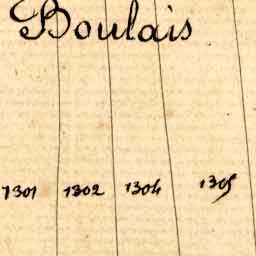 Boulais
1301 1302 1304 1305